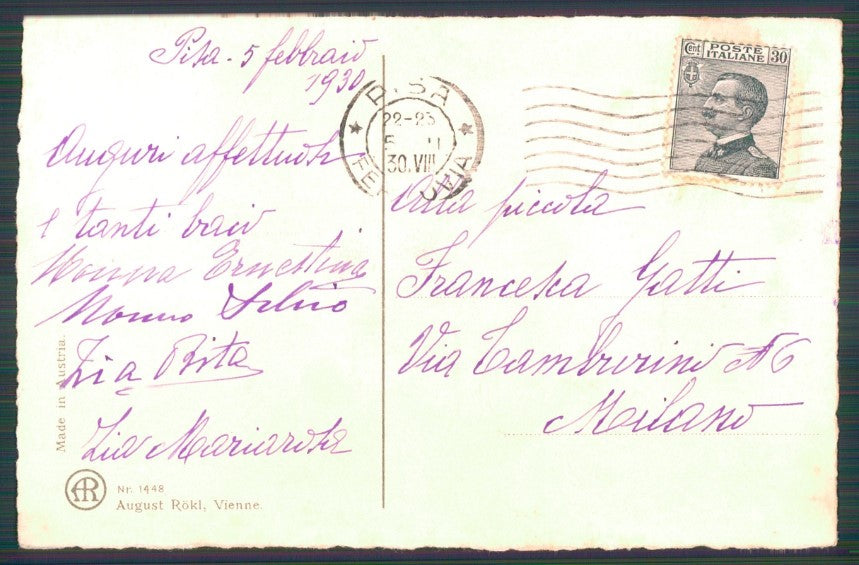 Pisa - 5 febbraio
1930
Auguri affettuosi
e tanti baci
Nonna Ernestina
Nonno Silvio
Zia Rita
Zia Mariarosa
Made in Austria.
AR
Nr. 1448
August Rökl, Vienne.
PISA
22-23
5 II
30.VIII
FERROVIA
Cent. POSTE ITALIANE 30
Alla piccola
Francesca Gatti
Via Tamburini N 6
Milano